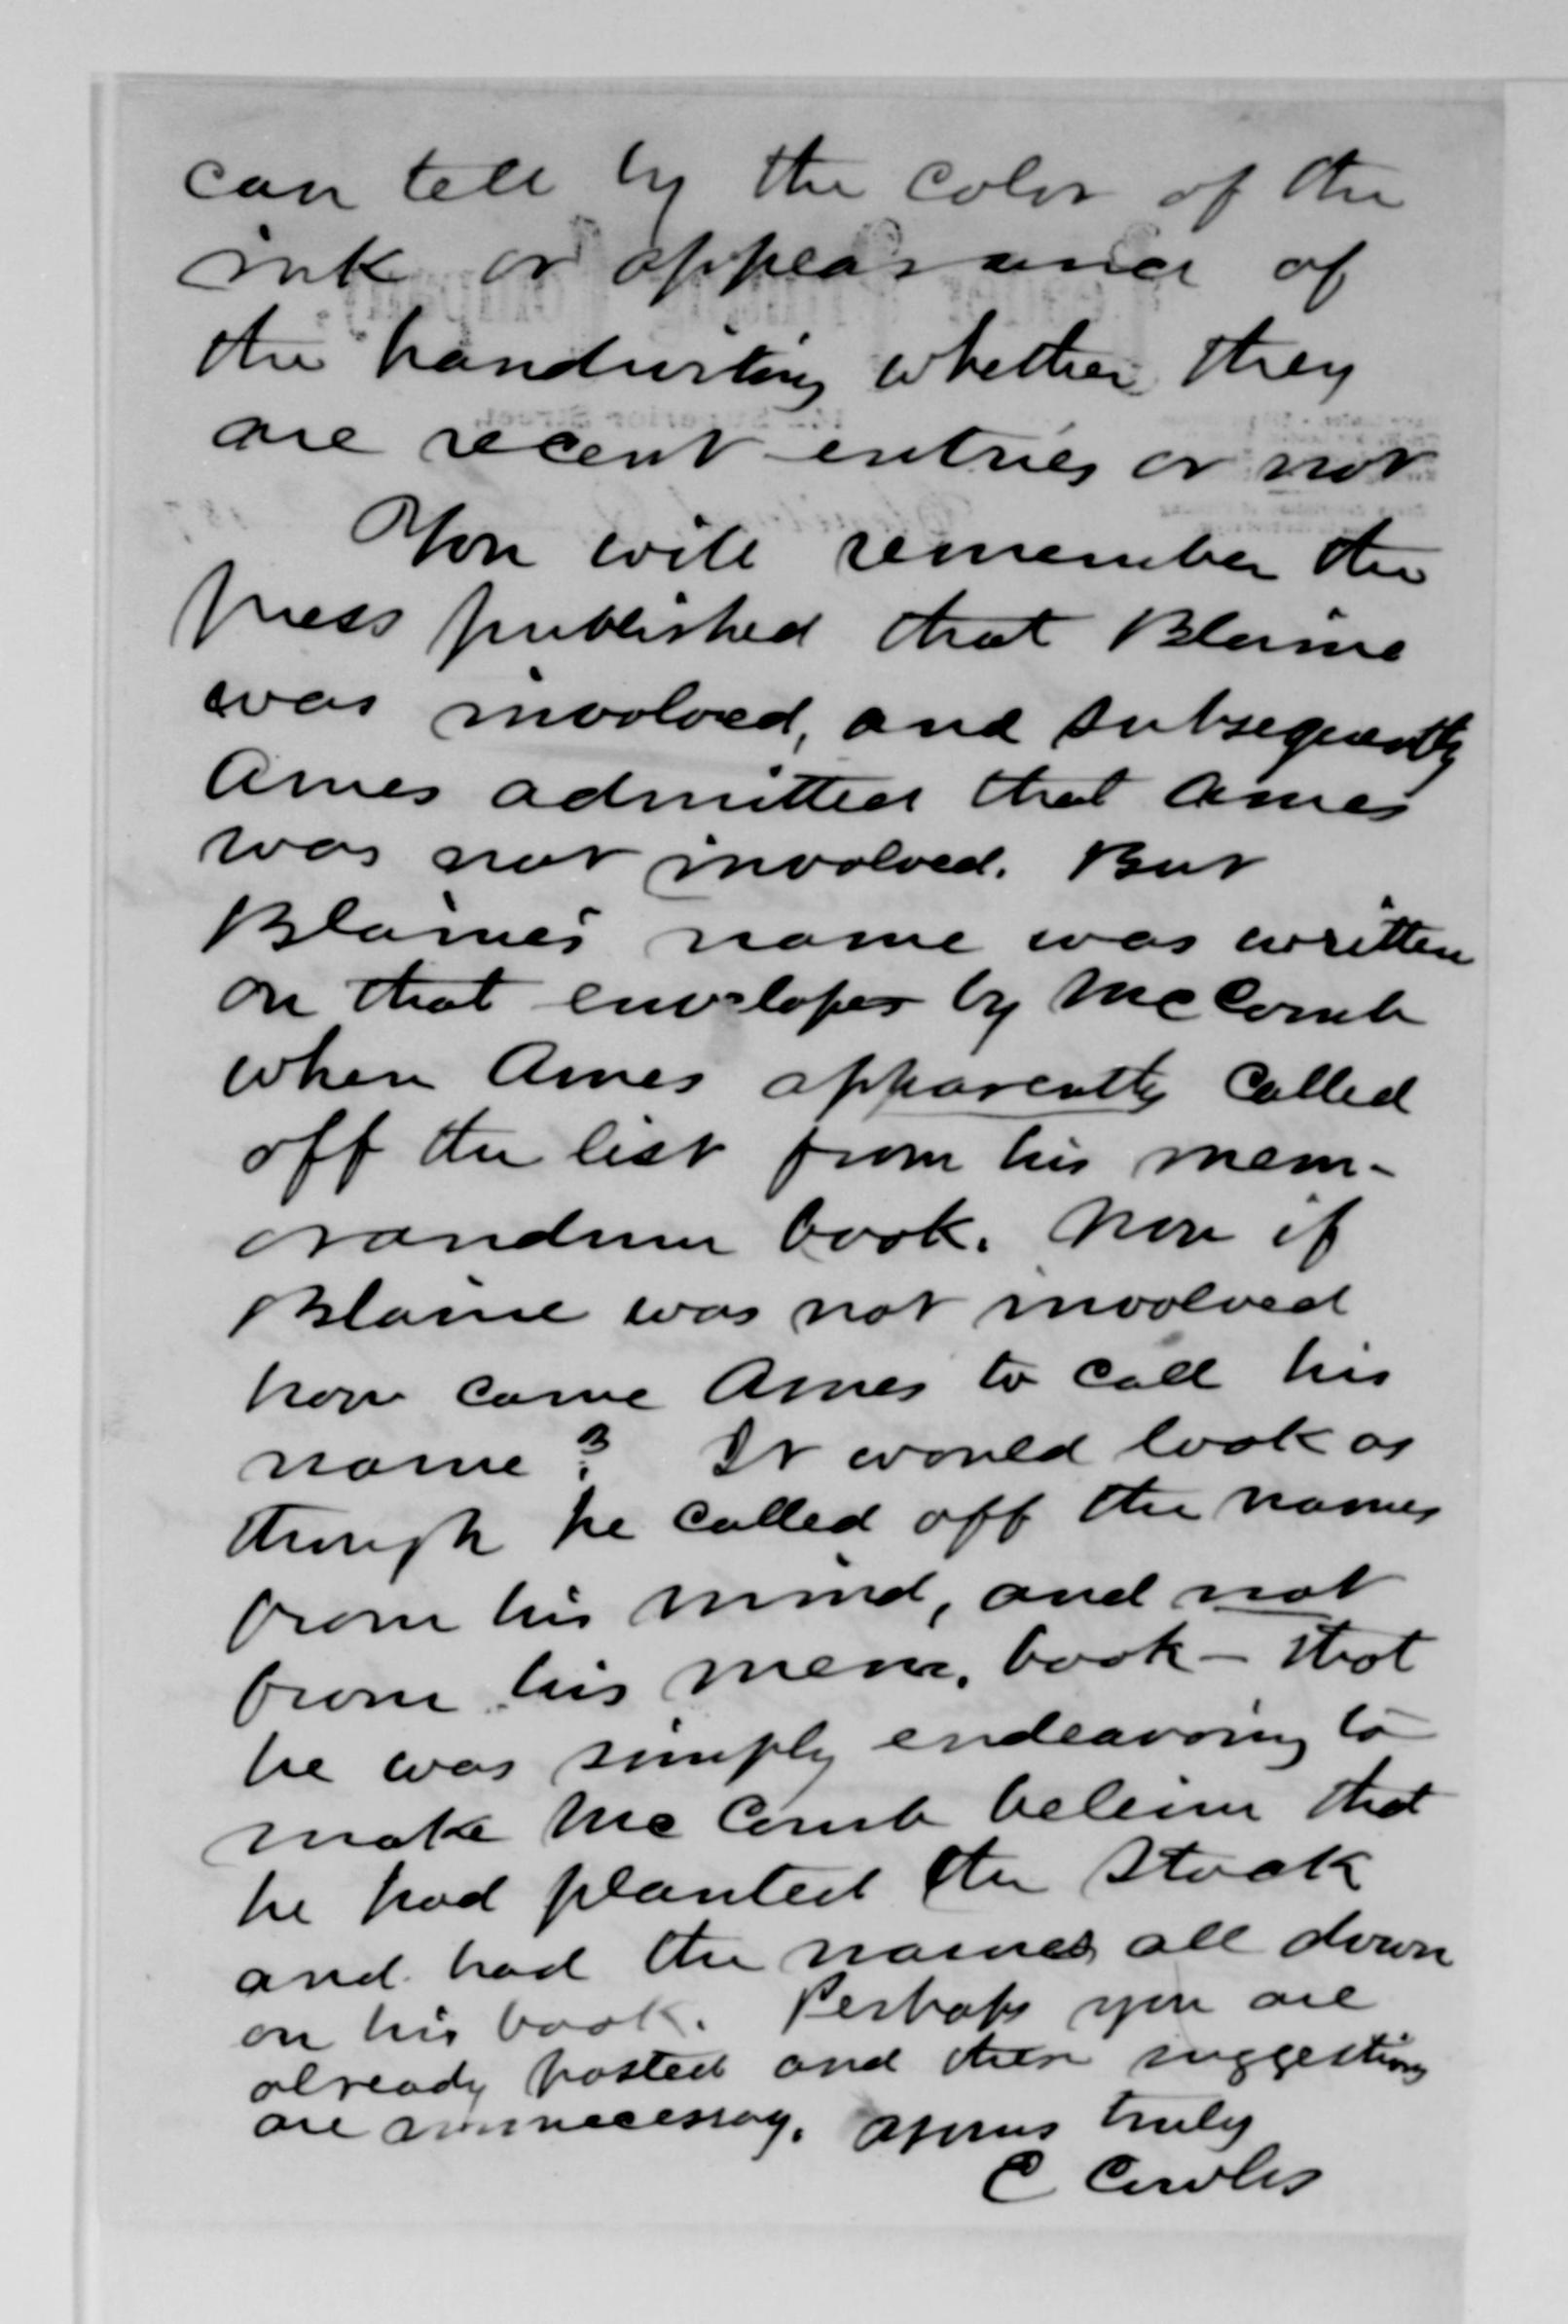 can tell by the color of the
ink or appearance of
the handwriting whether they
are recent entries or not
You will remember the
press published that Blaine
was involved, and subsequently
Ames admitted that Ames
was not involved. But
Blaine's name was written
on that envelope by McComb
when Ames apparently called
off the list from his mem-
orandum book. Now if
Blaine was not involved
how came Ames to call his
name? It would look as
though he called off the names
from his mind, and not
from his mem. book – that
he was simply endeavoring to
make McComb beleive that
he had planted the stock
and had the names all down
on his book. Perhaps you are
already posted and these suggestions
are unnecessary. Yours truly
E Cowles